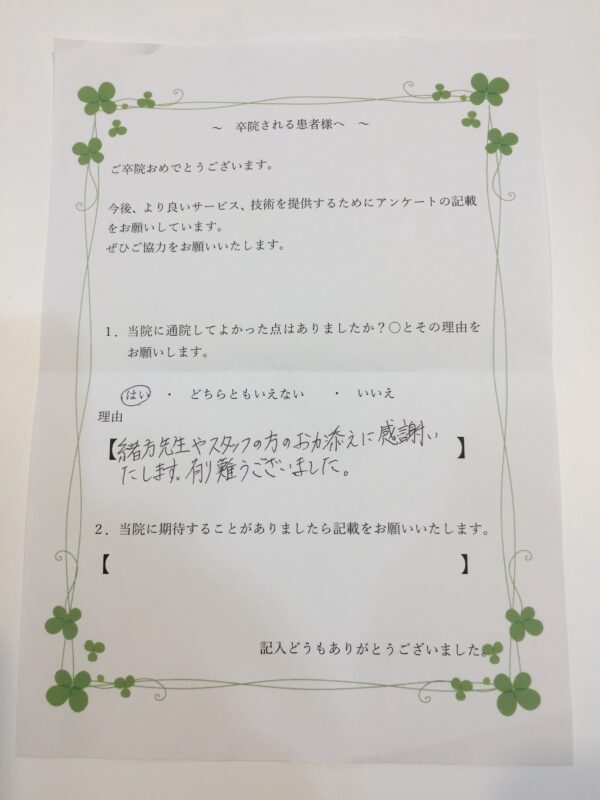 ～ 卒院される患者様へ ～
ご卒院おめでとうございます。
今後、より良いサービス、技術を提供するためにアンケートの記載
をお願いしています。
ぜひご協力をお願いいたします。
1．当院に通院してよかった点はありましたか？○とその理由を
お願いします。
はい ・ どちらともいえない ・ いいえ
理由
【緒方先生やスタッフの方のお力添えに感謝い
たします。有り難うございました。】
2．当院に期待することがありましたら記載をお願いいたします。
【 】
記入どうもありがとうございました。